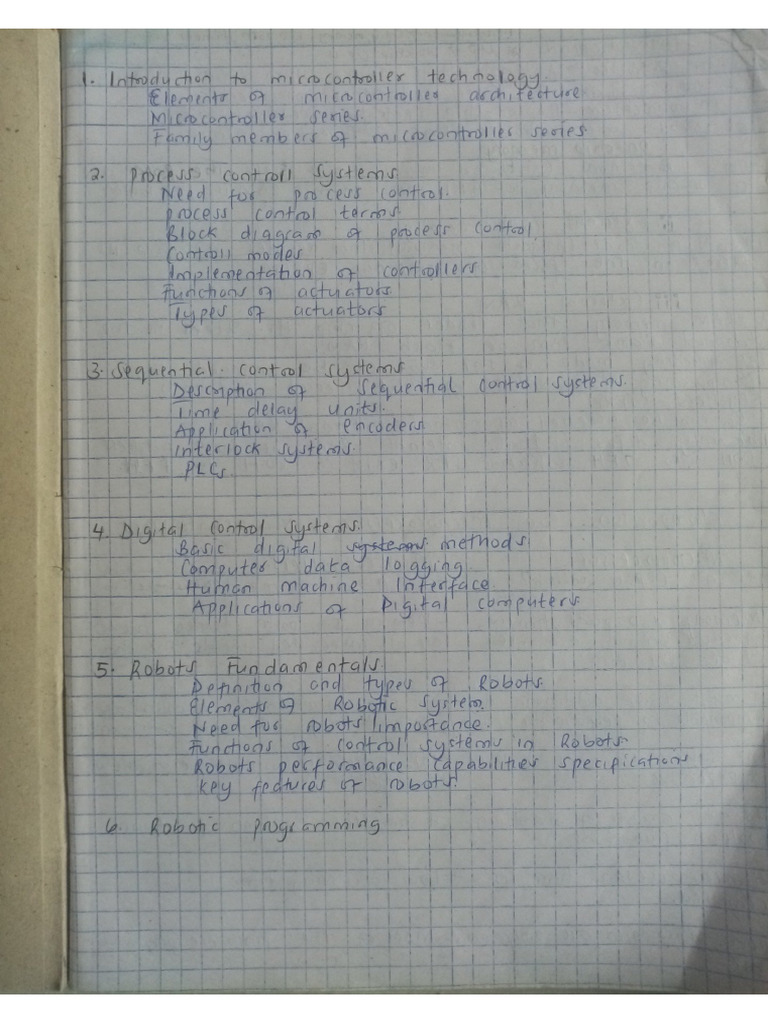 1. Introduction to microcontroller technology.
Elements of microcontroller architecture
Microcontroller series.
Family members of microcontroller series.
2. Process controll systems
Need for process control.
Process control terms
Block diagram of process control
Controll modes
Implementation of controllers
Functions of actuators
Types of actuators
3. Sequential control systems
Description of Sequential control systems.
Time delay units.
Application of encoders
Interlock systems.
PLCs
4. Digital control systems.
Basic digital systems methods
Computer data logging
Human machine Interface.
Applications of Digital computers
5. Robots Fundamentals
Definition and types of Robots.
Elements of Robotic system.
Need for robots/importance.
Functions of control systems in Robots.
Robots performance capabilities specifications
Key features of robots.
6. Robotic programming